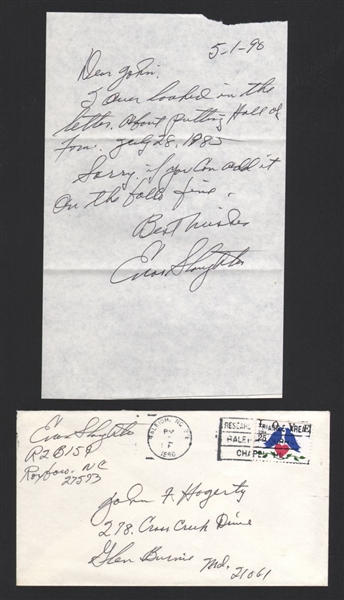 5-1-90
Dear John.
I over looked in the
letter. About putting Hall of
Fame. July 28, 1985
Sorry. if you Can add it
On the balls fine.
Best Wishes
Enos Slaughter
Enos Slaughter
R2 B159
Roxboro. NC
27573
RALEIGH, NC
PM
1990
RESEARCH TRIANGLE AREA
RALEIGH
CHAPEL
LOVE
25 USA
John F. Hogerty
278. Cross Creek Drive
Glen Burnie Md.
21061